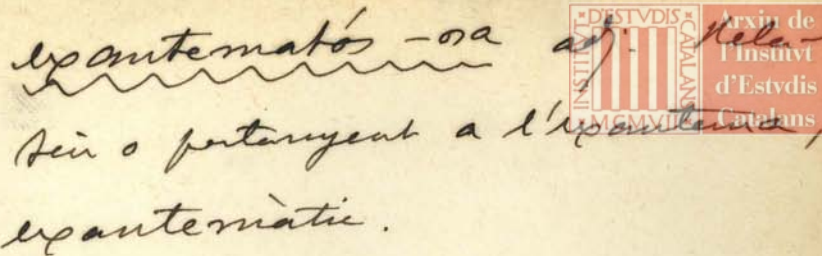 exantematós -osa adj. Rela-
tiu o pertanyent a l'exantema,
exantemàtic.
INSTITVT D'ESTVDIS CATALANS
MCMVII
Arxiu de
l'Institvt
d'Estvdis
Catalans